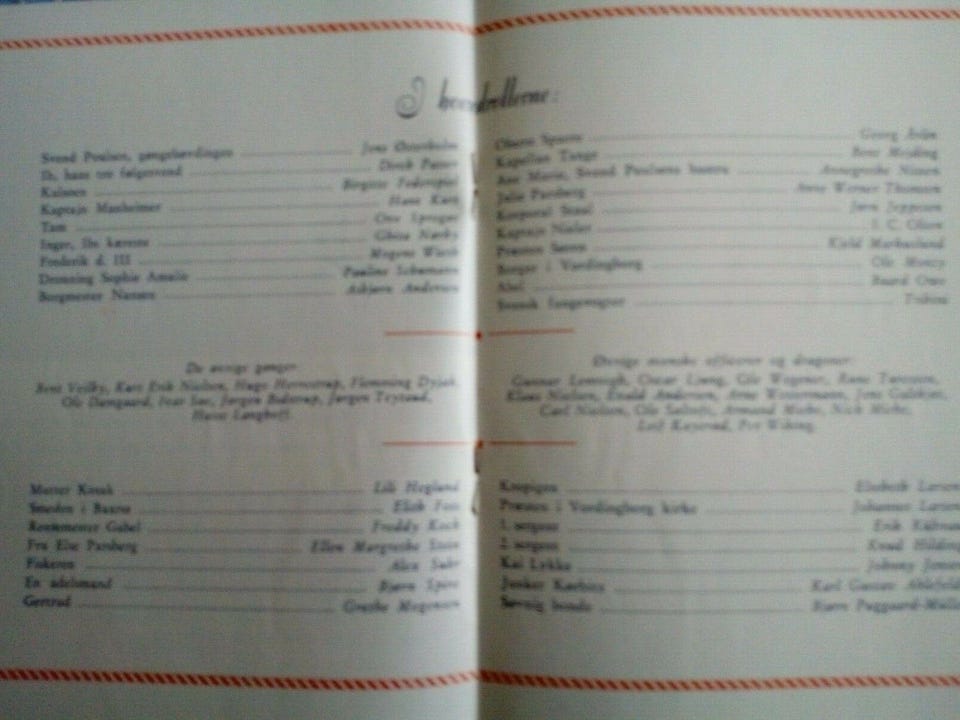 I hovedrollerne:
Svend Poulsen, gøngehøvdingen Jens Østerholm
Ib, hans tro følgesvend Dirch Passer
Kulsoen Birgitte Federspiel
Kaptajn Manheimer Hans Kurt
Tam Ove Sprogøe
Inger, Ibs kæreste Ghita Nørby
Frederik d. III Mogens Wieth
Dronning Sophie Amalie Pauline Schumann
Borgmester Nansen Asbjørn Andersen
Oberst Sparre Georg Årlin
Kapellan Tange Bent Mejding
Ane Marie, Svend Poulsens hustru Annegrethe Nissen
Julie Parsberg Anne Werner Thomsen
Korporal Jørn Jeppesen
Kaptajn I. C. Olsen
Præsten Søren Kjeld Markuslund
Borger i Vordingborg Ole Monty
Abel Baard Owe
Svensk fangevogter
De øvrige gønger:
Bent Vejlby, Karl Erik Nielsen, Hugo Herrestrup, Flemming Dyjak,
Ole Damgaard, Ivar Søe, Jørgen Bidstrup, Jørgen Teytaud,
Hans
Øvrige svenske officerer og dragoner:
Gunnar Lemvigh, Oscar Ljung, Ole Wegener, Rune
Klaus Nielsen, Ewald Andersen, Arne Westermann, Jens
Carl Nielsen, Ole Armand Miehe, Nick Miehe,
Leif Per Wiking.
Morter Knuk Lili Heglund
Smeden i Baarse Elith Foss
Rentemester Gabel Freddy Koch
Fru Else Parsberg Ellen Margrethe Stein
Fiskeren Alex Suhr
En adelsmand Bjørn Spiro
Gertrud Grethe Mogensen
Kropigen Elsebeth Larsen
Præsten i Vordingborg kirke Johannes Larsen
1. svoger Erik
2. svoger Knud Hilding
Kai Lykke Johnny Jensen
Junker Kørbitz Karl Gustav Ahlefeldt
bonde Bjørn Puggaard-Müller